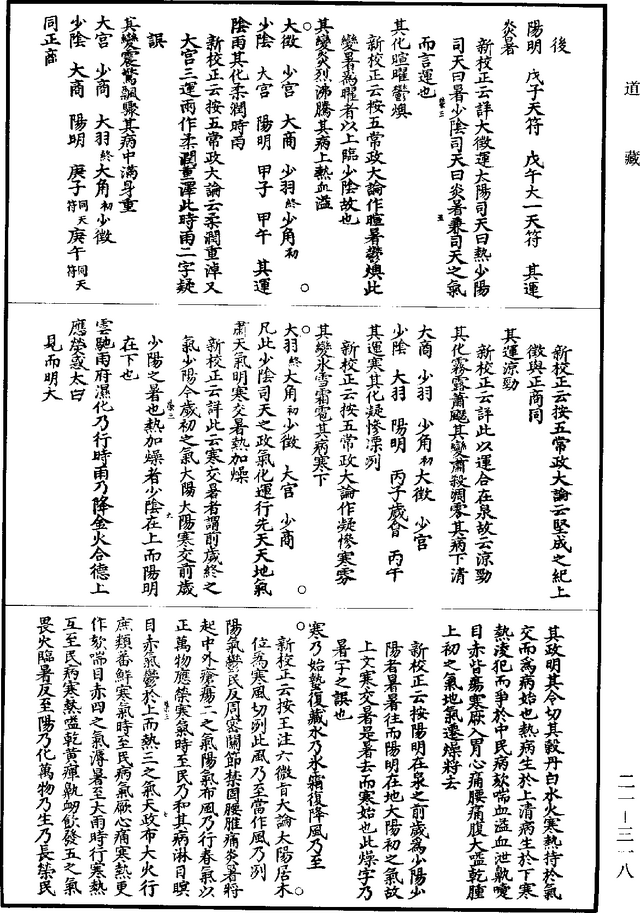 道藏
後
陽明　戊子天符　戊午太一天符　其運
炎暑
新校正云詳大徵運太陽司天曰熱少陽
司天曰暑少陰司天曰炎暑兼司天之氣
而言運也
其化暄曜鬱燠
新校正云按五常政大論作暄暑鬱燠此
變暑爲曜者以上臨少陰故也
其變炎烈沸騰其病上熱血溢
大徵　少宮　大商　少羽終少角初
少陰　大宮　陽明　甲子　甲午　其運
陰雨其化柔潤時雨
新校正云按五常政大論云柔潤重淖又
大宮三運兩作柔潤重澤此時雨二字疑
誤
其變震驚飄驟其病中滿身重
大宮　少商　大羽終大角初少徵
少陰　大商　陽明　庚子同天符庚午同天符
同正商
新校正云按五常政大論云堅成之紀上
徵與正商同
其運涼勁
新校正云詳此以運合在泉故云涼勁
其化霧露蕭飋其變肅殺凋零其病下清
大商　少羽　少角初大徵　少宮
少陰　大羽　陽明　丙子歲會　丙午
其運寒其化凝慘凓冽
新校正云按五常政大論作凝慘寒雰
其變冰雪霜雹其病寒下
大羽終大角初少徵　大宮　少商
凡此少陰司天之政氣化運行先天地氣
肅天氣明寒交暑熱加燥
新校正云詳此云寒交暑者謂前歲終之
氣少陽今歲初之氣太陽太陽寒交前歲
少陽之暑也熱加燥者少陰在上而陽明
在下也
雲馳雨府濕化乃行時雨乃降金火合德上
應熒惑太白
見而明大
其政明其令切其穀丹白水火寒熱持於氣
交而爲病始也熱病生於上清病生於下寒
熱凌犯而爭於中民病欬喘血溢血泄鼽嚏
目赤眥瘍寒厥入胃心痛腰痛腹大嗌乾腫
上初之氣地氣遷燥將去
新校正云按陽明在泉之前歲爲少陽少
陽者暑暑往而陽明在地太陽初之氣故
上文寒交暑是暑去而寒始也此燥字乃
暑字之誤也
寒乃始蟄復藏水乃冰霜復降風乃至
新校正云按王注六微旨大論太陽居木
位爲寒風切列此風乃至當作風乃列
陽氣鬱民反周密關節禁固腰脽痛炎暑將
起中外瘡瘍二之氣陽氣布風乃行春氣以
正萬物應榮寒氣時至民乃和其病淋目瞑
目赤氣鬱於上而熱三之氣天政布大火行
庶類番鮮寒氣時至民病氣厥心痛寒熱更
作欬喘目赤四之氣溽暑至大雨時行寒熱
互至民病寒熱嗌乾黃癉鼽衂飲發五之氣
畏火臨暑反至陽乃化萬物乃生乃長榮民
二一—三一八